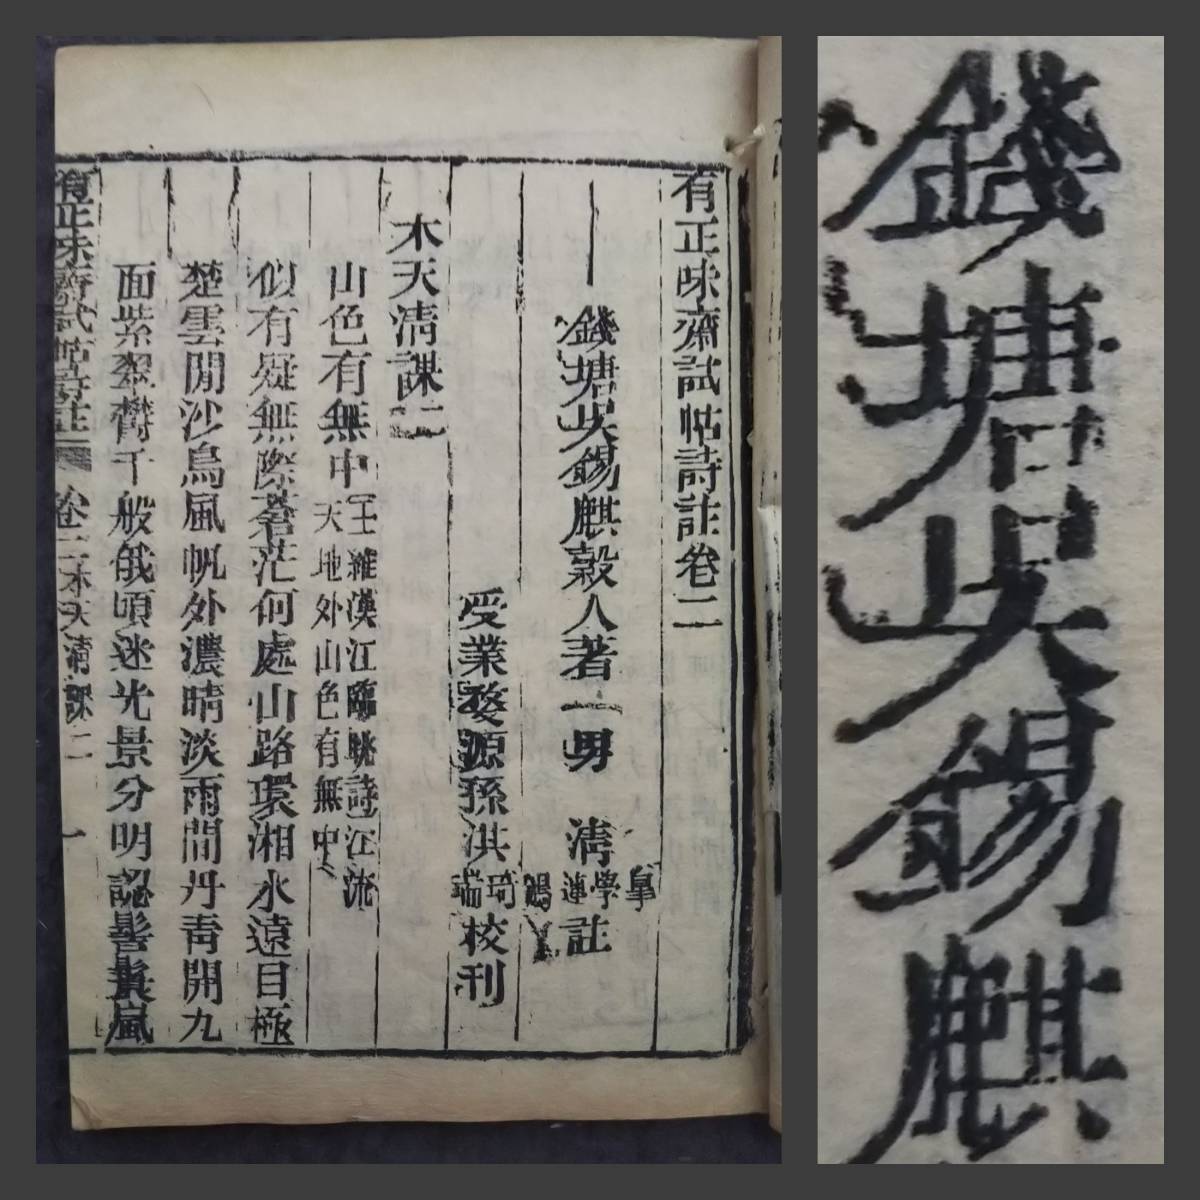 有正味齋試帖詩註卷二
錢塘吳錫麒榖人著 男 清 皐 學 蓮 鵾 註
受業婺源孫洪 琦 瑞 校刊
木天清課二
山色有無中 王維漢江臨眺詩江流天地外山色有無中
似有疑無際蒼茫何處山路環湘水遠目極
楚雲閒沙鳥風帆外濃晴淡雨間丹青開九
面紫翠欎千般俄頃迷光景分明認髻鬟嵐
有正味齋試帖詩註 卷二木天清課二 一
錢塘吳錫麒